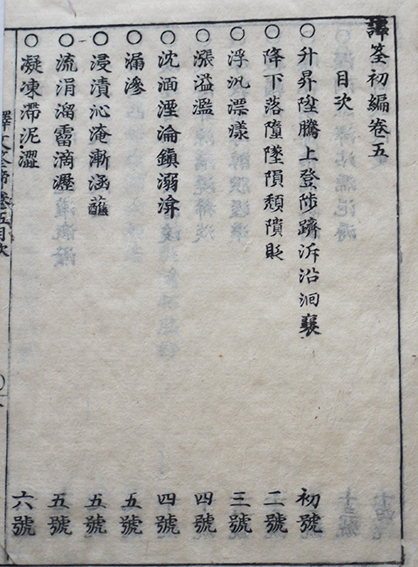 譯筌初編卷五
目次
○升昇陞騰上登陟躋泝沿洄襄 初號
○降下落墮墜隕頽隤貶 二號
○浮汎漂漾 三號
○漲溢濫 四號
○沈湎湮淪鎮溺渰 四號
○漏滲 五號
○浸漬沁淹漸涵蘸 五號
○流涓溜霤滴瀝 五號
○凝凍滯泥澀 六號
譯文筌蹄卷五目次